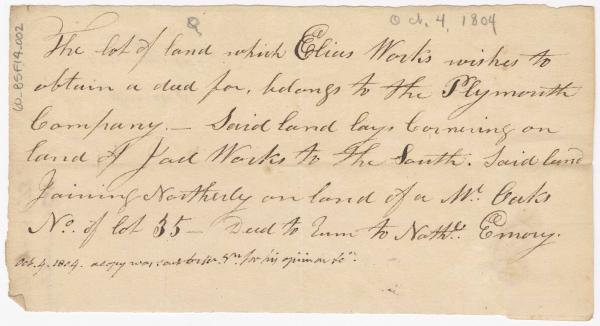 Oct. 4, 1804
60-BSF14-002
The lot of land which Elias Works wishes to
obtain a deed for, belongs to the Plymouth
Company. — Said land lays Cornering on
land of Jad Works to the South. Said land
Joining Northerly on land of a Mr. Oaks
No. of lot 35 — Deed to run to Nathl. Emory.
Oct. 4. 1804. a copy was sent to for his opinion &c.